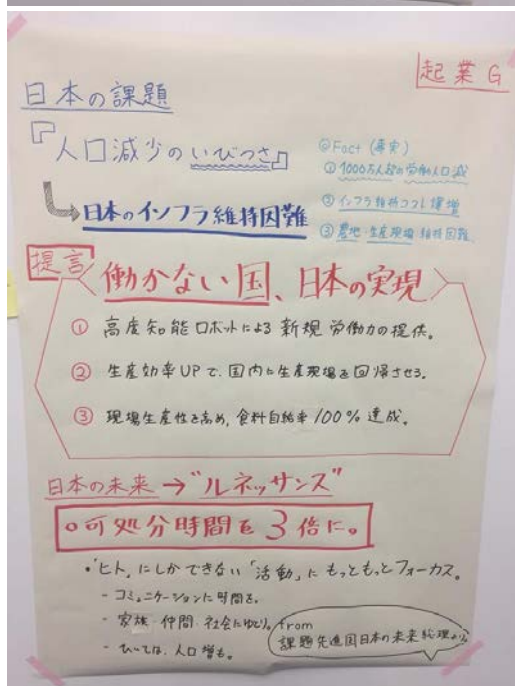 起業G
日本の課題
『人口減少のいびつさ』
◎Fact（事実）
① 1000万人超の労働人口減
② インフラ維持コスト増
③ 農地・生産現場 維持困難
日本のインフラ維持困難
提言
働かない国、日本の実現
① 高度知能ロボットによる 新規 労働力の提供。
② 生産効率UPで、国内に生産現場を回帰させる。
③ 現場生産性を高め、食料自給率100%達成。
日本の未来→"ルネッサンス"
○可処分時間を3倍に。
・"ヒト"にしかできない「活動」にもっともっとフォーカス。
- コミュニケーションに時間を。
- 家族・仲間・社会にゆとり。
- ひいては、人口増も。
from
課題先進国日本の未来総理より